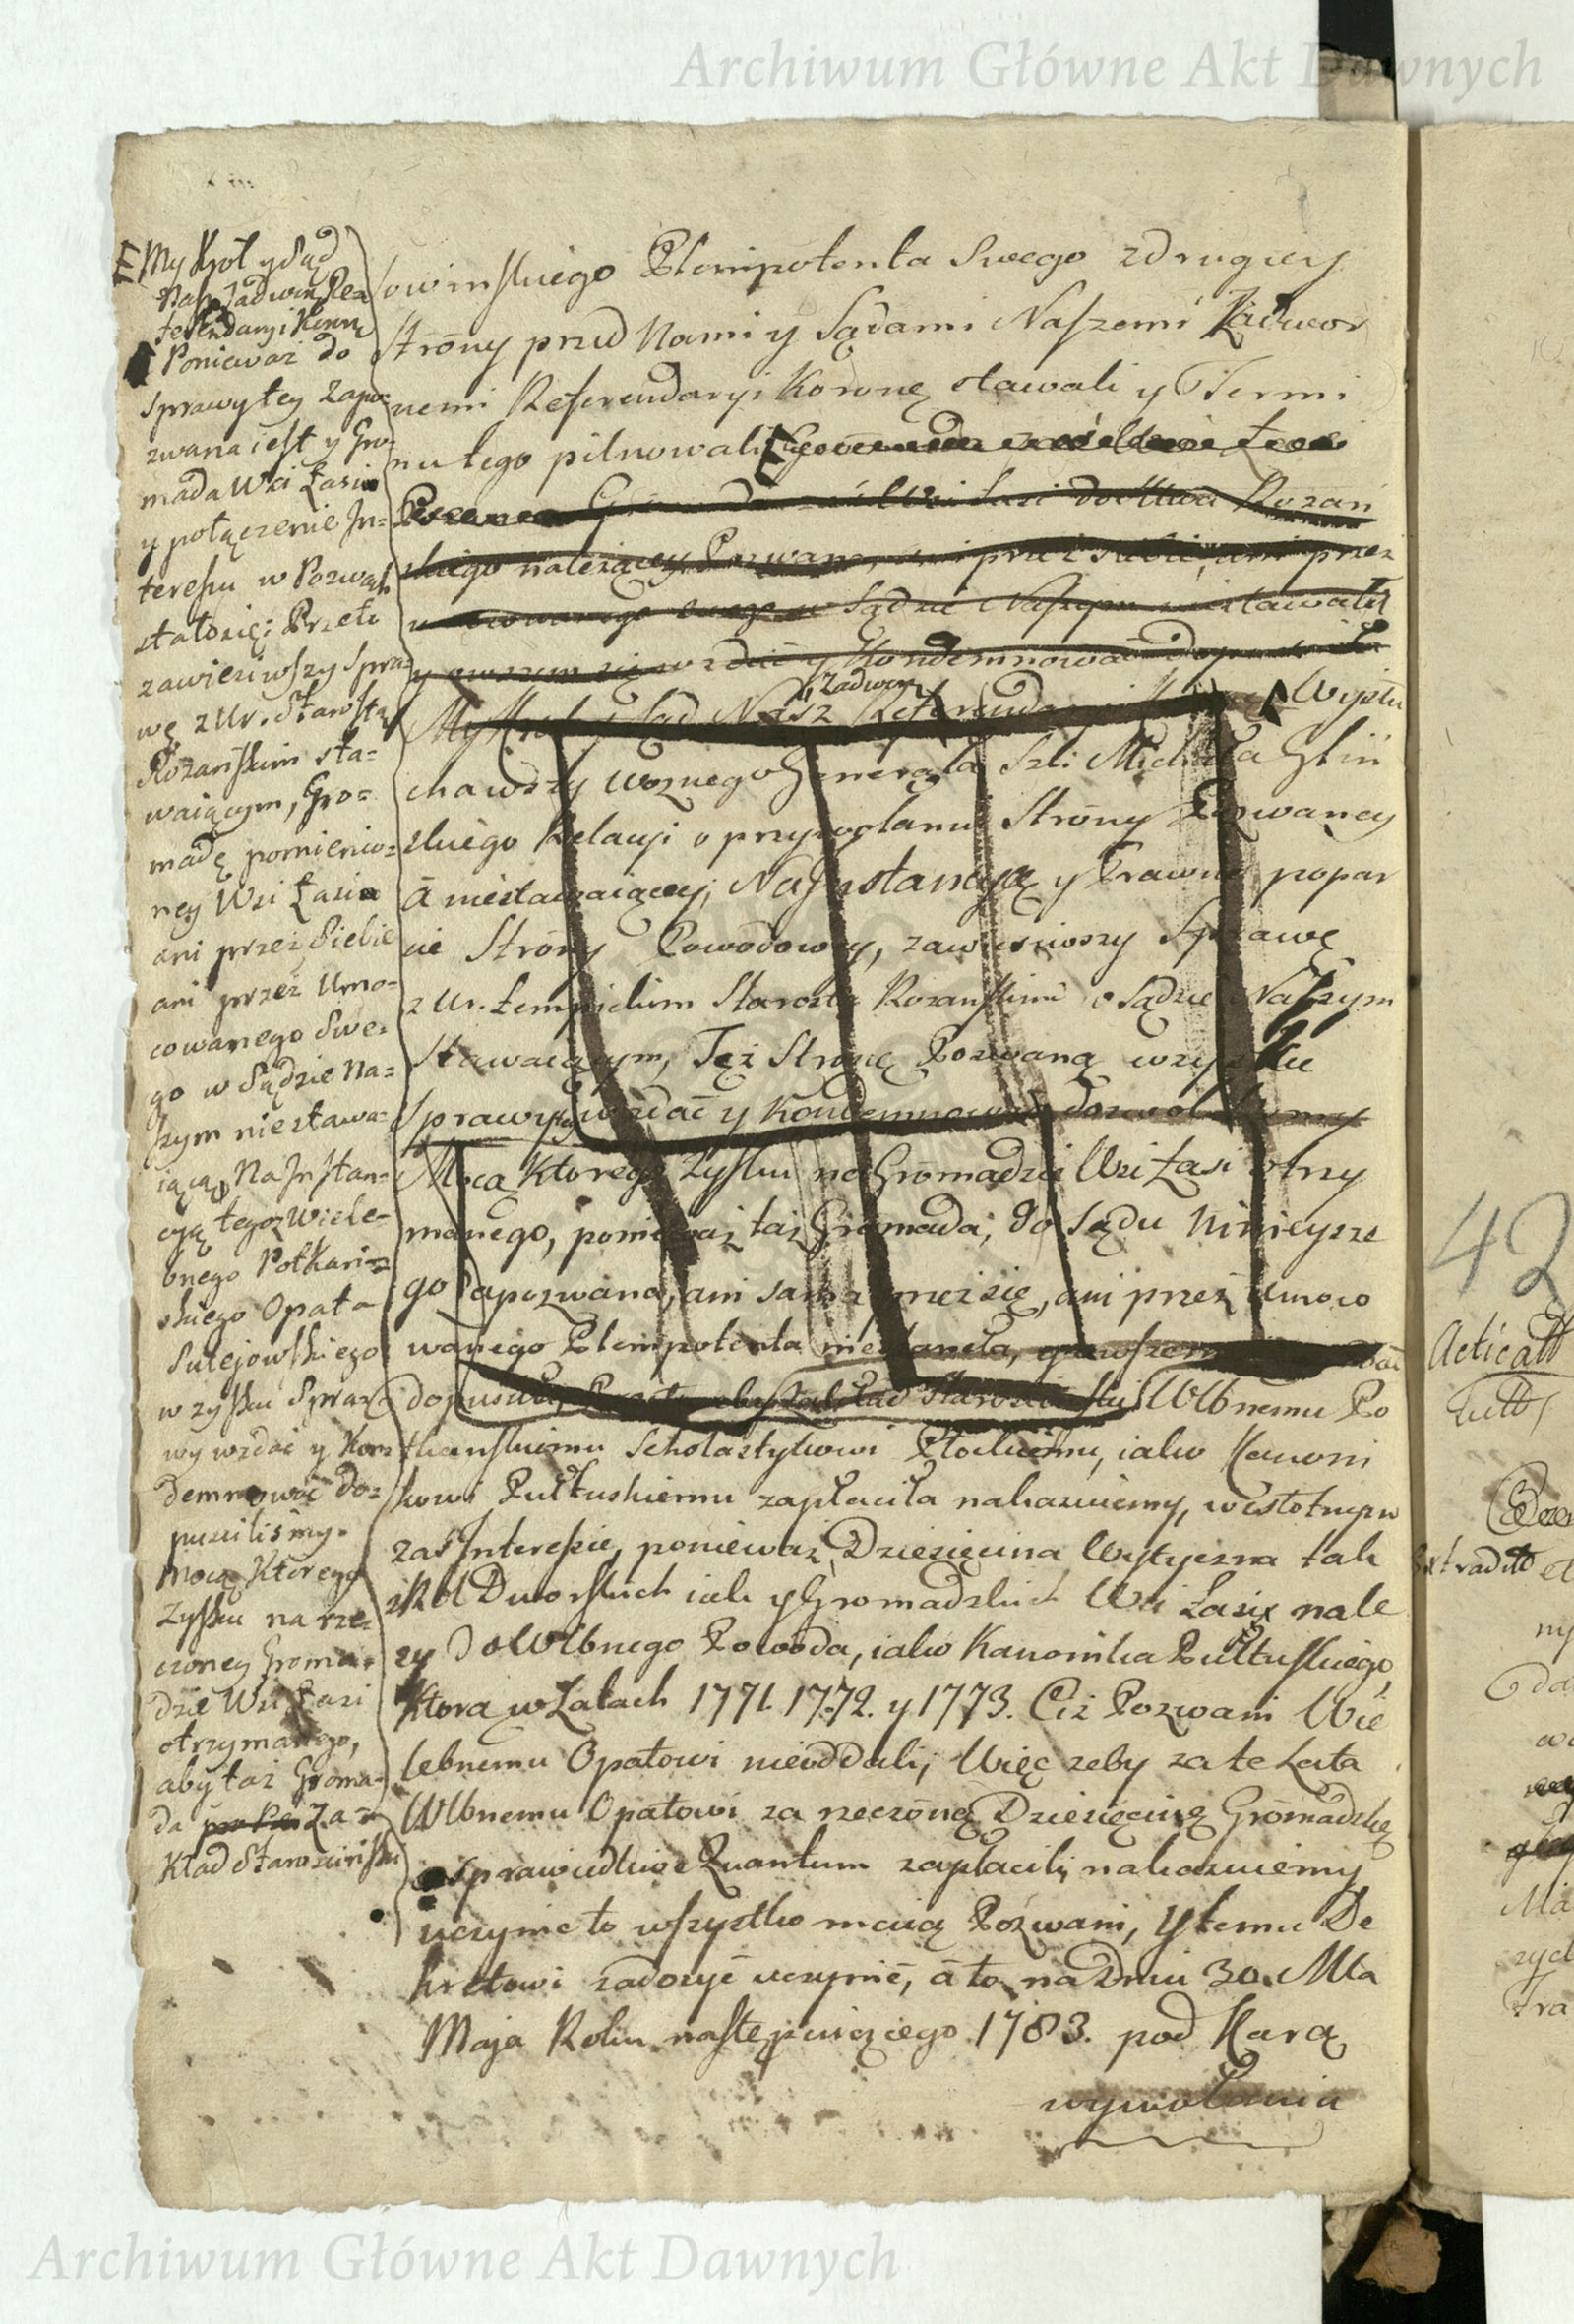 Archiwum Główne Akt Dawnych
My Krol y Sąd
Nasz Zadwor. Re=
ferendaryi Koron.
Ponieważ do
sprawy tey zapo=
zwana iest y Gro=
mada Wsi Łasi
y połączenie In=
teressu w Pozwach
stało się; Przeto
zawiesiwszy Spra=
wę z Ur. Starostą
Rożańskim sta=
waiącym, Gro=
madę pomienio=
ney Wsi Łasi
ani przez Siebie
ani przez Umo=
cowanego Swe=
go w Sądzie Na=
szym niestawa=
iącą, Na Instan=
cyą tegoż Wiele=
bnego Potkań=
skiego Opata
Sulejowskiego
w zysku Spra=
wy wzdać y Kon=
demnować do=
puscilismy.
Mocą Ktorego
Zysku na rze=
czoney Groma=
dzie Wsi Łasi
otrzymanego,
aby taż Groma=
da Za=
kład Starosciński
owinskiego Plenipotenta Swego z drugiey
Strony przed Nami y Sądami Naszemi Zadwor
nemi Referendaryi Koronę stawali y Termi
nu tego pilnowali
Wsi Łasi do Rozań
skiego należącey Pozwana, ani przez siebie, ani przez
Swego w Sądzie Naszym niestawała
y wzdać y Kondemnować
Zadwor
My Krol y Sąd Nasz Referenda Wysłu
chawszy Woznego Generała Szl: Michała Gliń
skiego Relacyi o przywołaniu Strony Pozwaney
a niestawaiącey, Na Instancyą y Prawne popar
cie Strony Powodowey, zawiesiwszy Sprawę
z Ur. Łempickim Starostą Rozanskim w Sądzie Naszym
Stawaiącym, Tęż Stronę Pozwaną w zysku
Sprawy wzdać y Kondemnować dozwolilismy
Mocą Ktorego Zysku na Gromadzie Wsi Łasi otrzy
manego, ponieważ taż Gromada, do Sądu Ninieysze
go Zapozwana, ani sama przez się, ani przez Umoco
wanego Plenipotenta niestaneła,
dopuscila, Przeto aby Zakład Starosciński Wlbnemu Po
tkanskiemu Scholastykowi Płockiemu, iako Kanoni
kowi Pułtuskiemu zapłaciła nakazuiemy, w istotnym
zaś Interesie, ponieważ Dziesięcina Wytyczna tak
z Rol Dworskich iak y Gromadzkich Wsi Łasię nale
zy do Wlbnego Powoda, iako Kanonika Pułtuskiego,
Ktorą w Latach 1771. 1772. y 1773. Ciż Pozwani Wie
lebnemu Opatowi nieoddali, Więc zeby za te Lata
Wlbnemu Opatowi za rzeczoną Dziesięcinę Gromadzką
sprawiedliwe Quantum zapłacili, nakazuiemy
uczynic to wszystko maią Pozwani, y temu De
kretowi zadosyć uczynić, a to na Dniu 30. Mca
Maja Roku następuiącego 1783. pod Karą
wywołania
42
Acticatt
Archiwum Główne Akt Dawnych